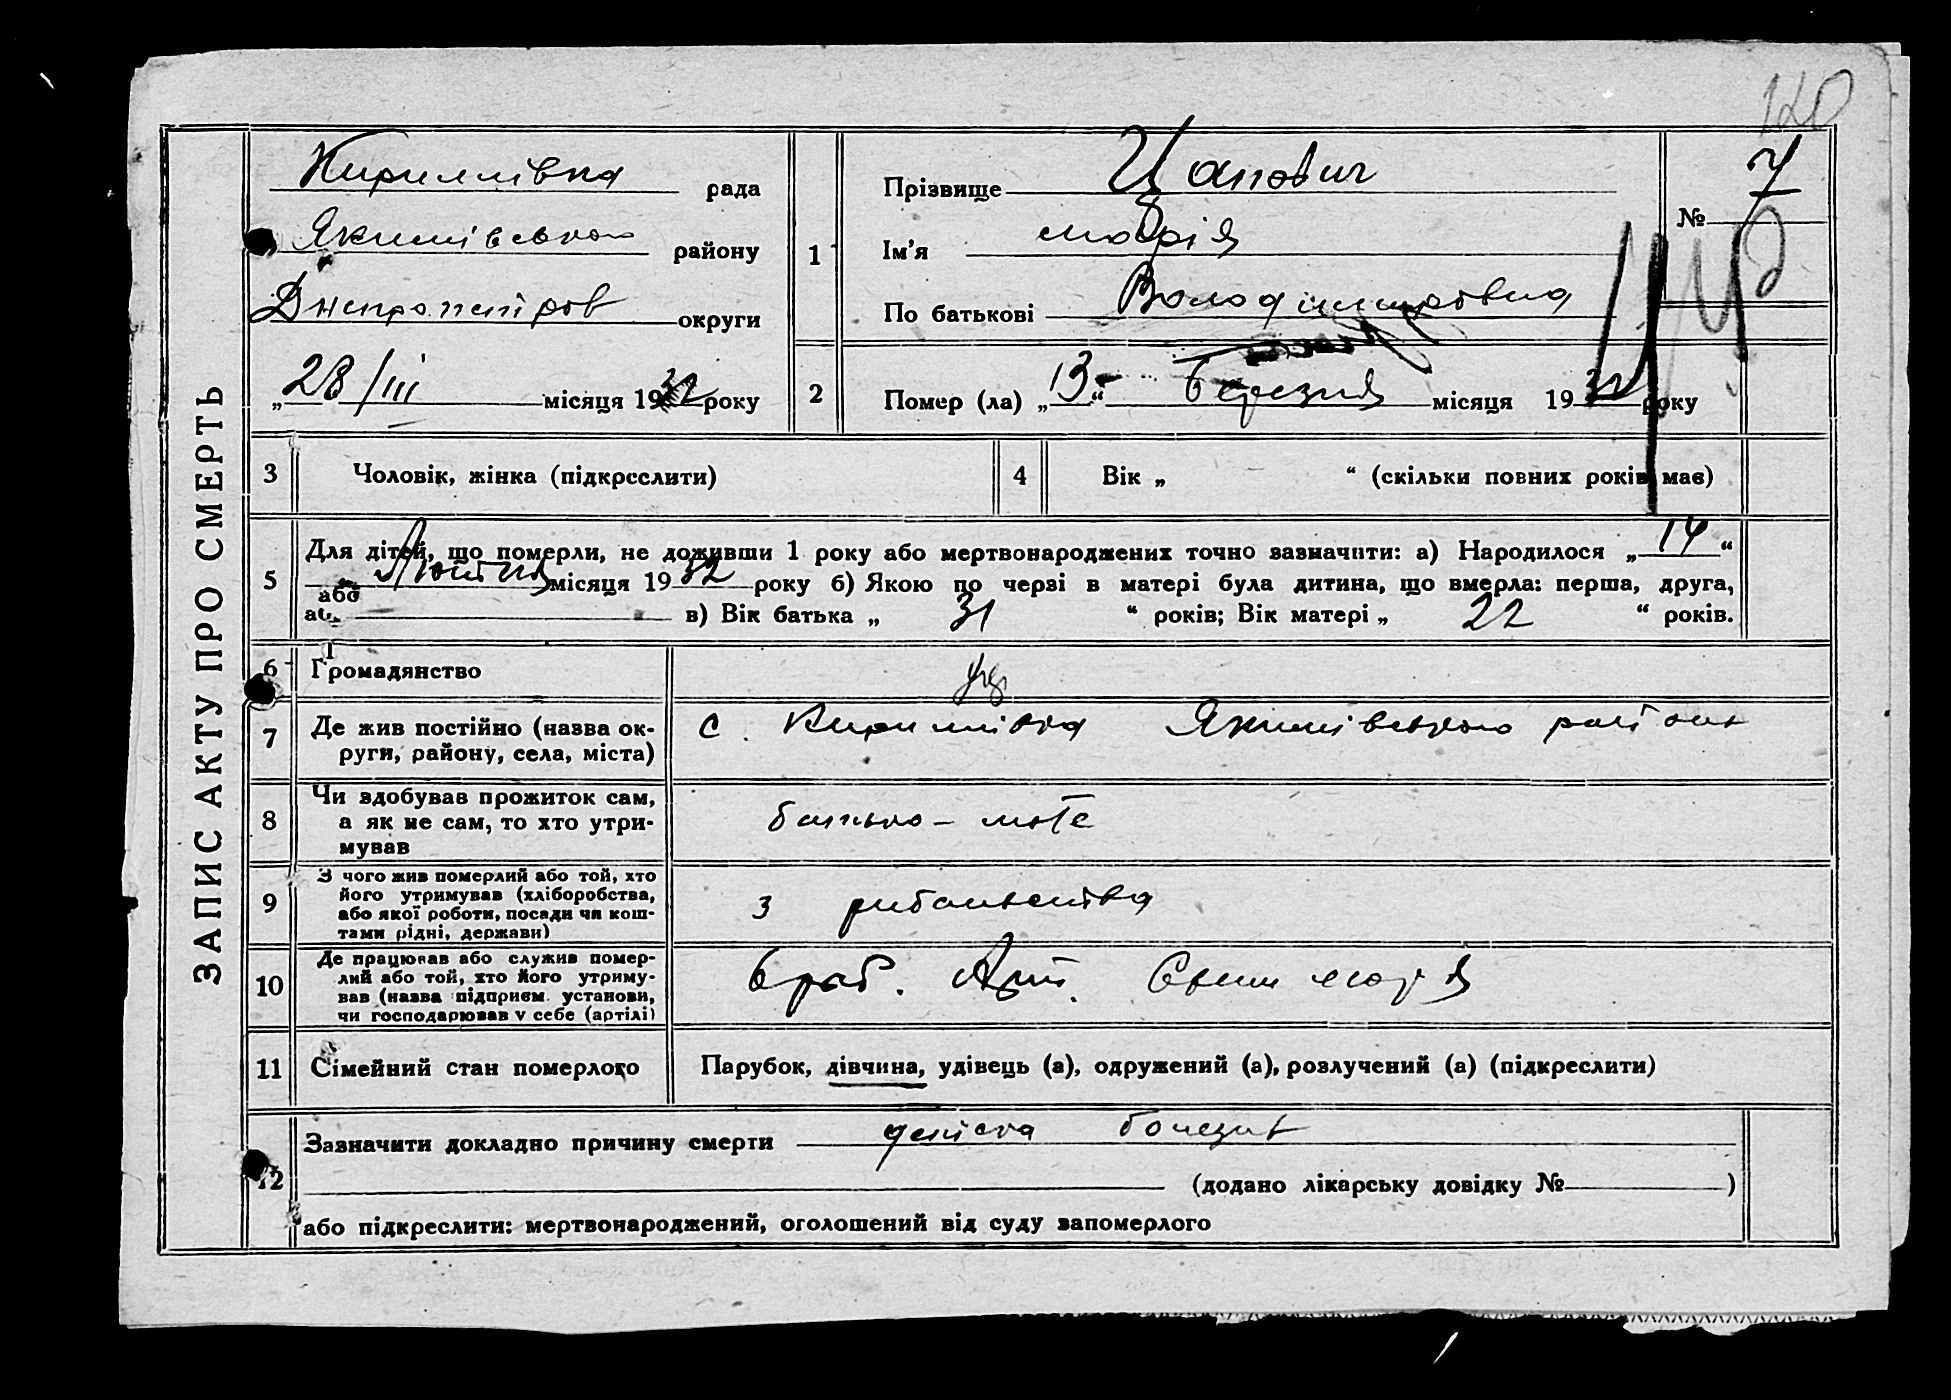 120
ЗАПИС АКТУ ПРО СМЕРТЬ
Кирилівка рада
Якимівського району
Днепропетров округи
„28/III місяця 1932 року
1 Прізвище Цапович
Ім'я Марія
По батькові Володимировна
№ 7
2 Помер (ла) „13“ березня місяця 1932 року
3 Чоловік, жінка (підкреслити)
4 Вік „ “ (скільки повних років має)
5 Для дітей, що померли, не доживши 1 року або мертвонароджених точно зазначити: а) Народилося „14“
Лютня місяця 1932 року б) Якою по черзі в матері була дитина, що вмерла: перша, друга,
або
в) Вік батька „ 31 “ років; Вік матері „ 22 “ років.
6 Громадянство укр
7 Де жив постійно (назва ок-
руги, району, села, міста)
с. Кирилівка Якимівського району
8 Чи здобував прожиток сам,
а як не сам, то хто утри-
мував
батько – мате
9 З чого жив померлий або той, хто
його утримував (хліборобства,
або якої роботи, посади чи кош-
тами рідні, держави)
з рибальства
10 Де працював або служив помер-
лий або той, хто його утриму-
вав (назва підприєм. установи,
чи господарював у себе (артілі)
Арт.
11 Сімейний стан померлого
Парубок, дівчина, удівець (а), одружений (а), розлучений (а) (підкреслити)
12 Зазначити докладно причину смерти
(додано лікарську довідку № )
або підкреслити: мертвонароджений, оголошений від суду запомерлого